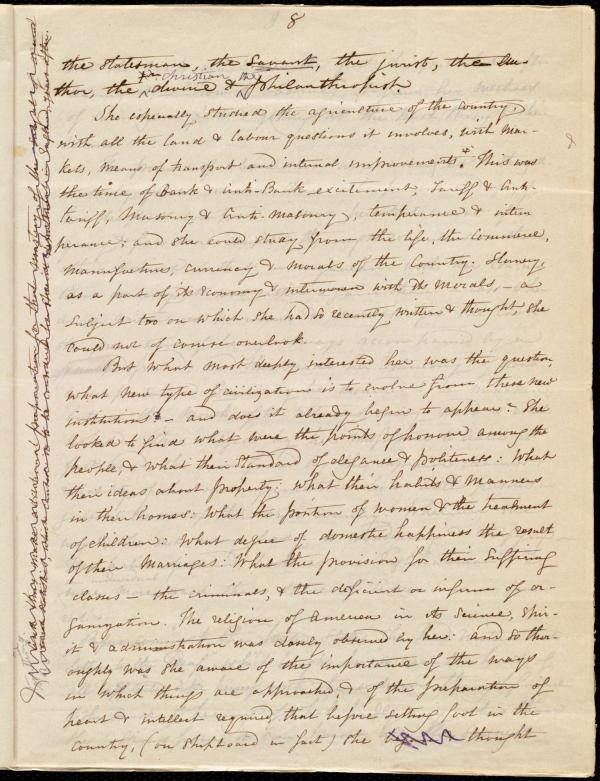 8
the statesman, the Savant, the jurist, the Au-
thor, the divine & the Christian the Philanthropist.
She especially studied the agriculture of the country,
with all the land & labour questions it involves, with mar-
kets, means of transport and internal improvements. This was
the time of Bank & Anti-Bank excitement, Tariff & Anti-
tariff, Masonry & Anti-masonry, temperance & intem
perance; and she could study from the life, the Commerce,
Manufactures, currency & morals of the Country. Slavery,
as a part of its economy & interwoven with its morals, – a
subject too on which she had so recently written & thought, she
could not of course overlook.
But what most deeply interested her was the question,
what new type of civilization is to evolve from these new
institutions? – and does it already begin to appear? She
looked to find what were the points of honour among the
people, & what their Standard of elegance & politeness: What
their ideas about Property; what their habits & manners
in their homes: What the portion of women & the treatment
of children: What degree of domestic happiness the result
of their Marriages: What the provision for their Suffering
classes – the criminals, & the deficient or infirm of or-
ganization. The religion of America in its Science, Spir-
it & administration was closely observed by her: and so tho-
roughly was she aware of the importance of the ways
in which things are approached & of the preparation of
heart & intellect required, that before setting foot in the
Country, (on Shipboard in fact) she thought